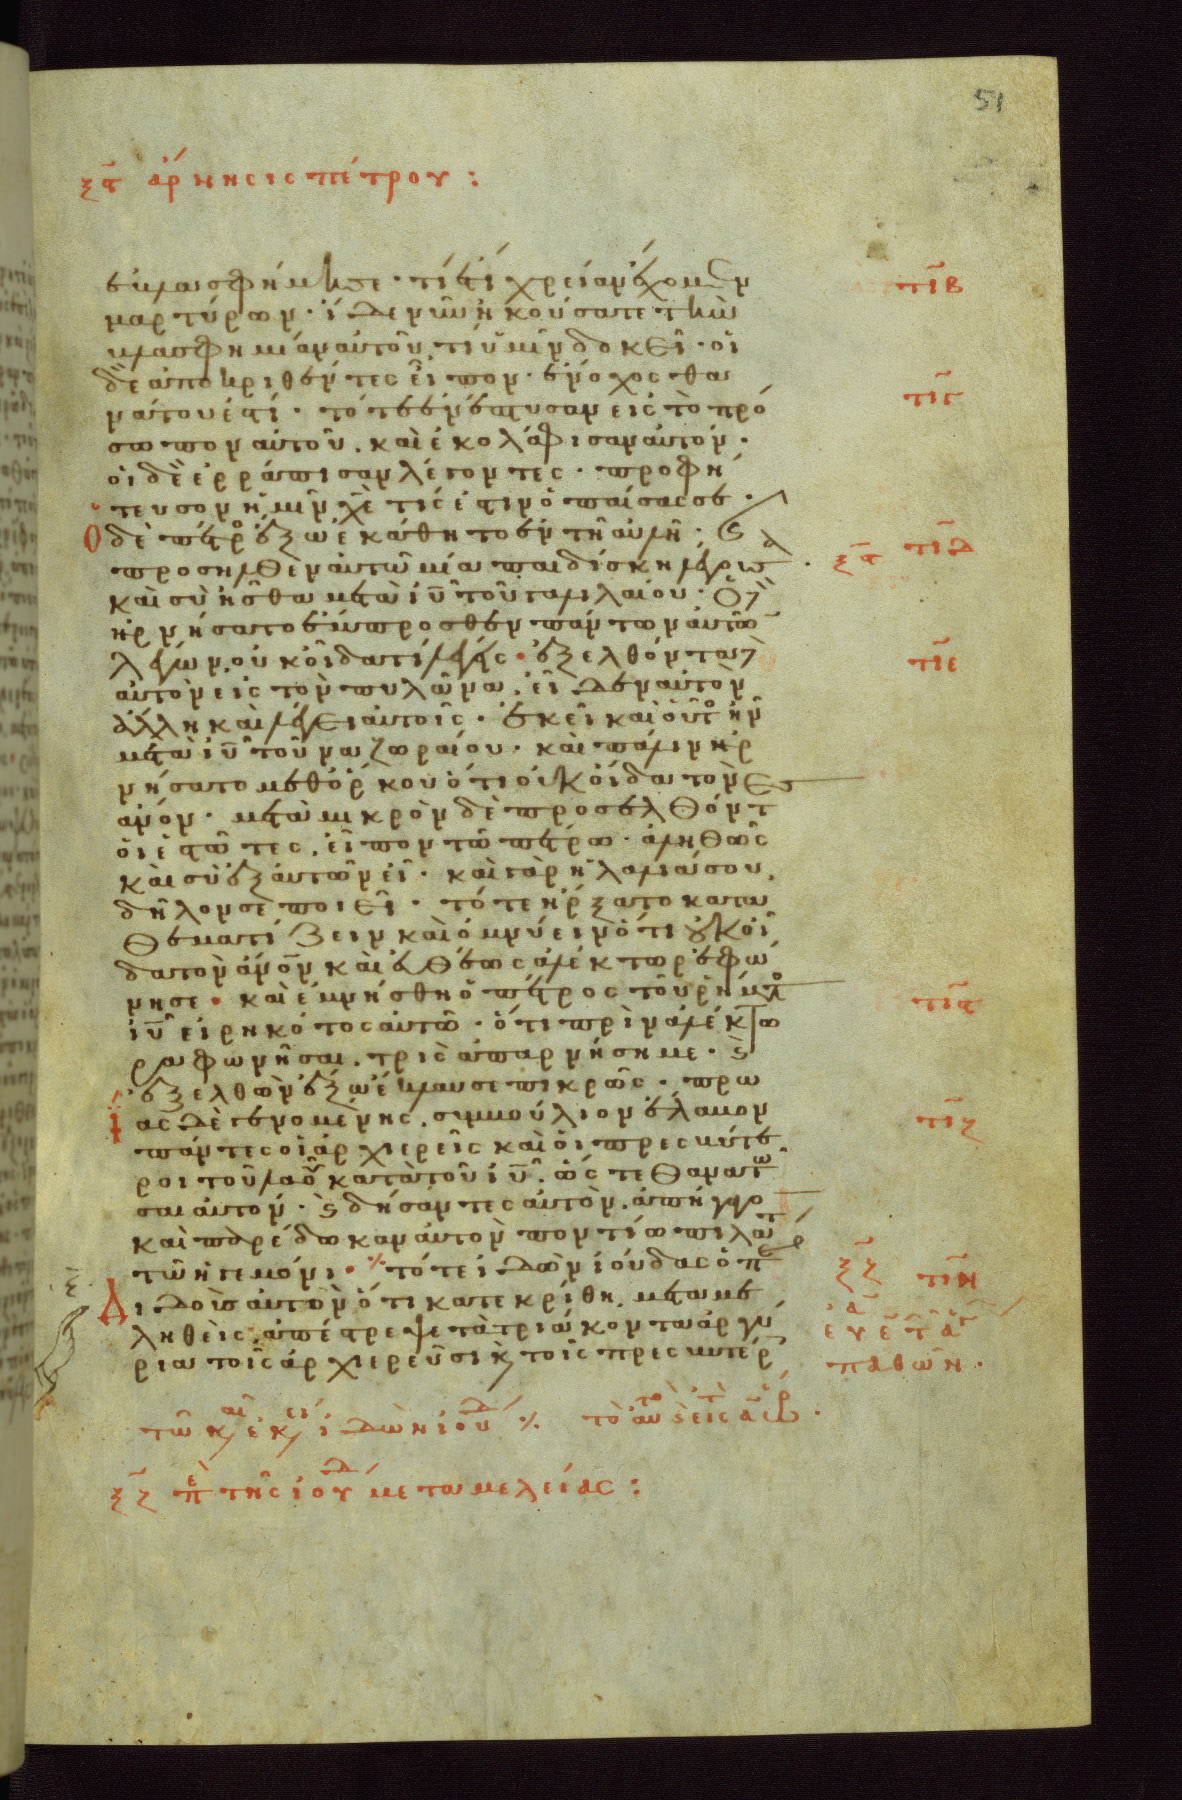 51
ξϛ ἄρνησις πέτρου:
ἐβλασφήμησε· τί ἔτι χρείαν ἔχομεν
μαρτύρων· ἴδε νῦν ἠκούσατε τὴν
βλασφημίαν αὐτοῦ, τί ὑμῖν δοκεῖ· οἱ
δὲ ἀποκριθέντες εἶπον· ἔνοχος θα
νάτου ἐστί· τότε ἐνέπτυσαν εἰς τὸ πρό
σωπον αὐτοῦ. καὶ ἐκολάφισαν αὐτόν·
οἱ δὲ ἐρράπισαν λέγοντες· προφή
τευσον ἡμῖν χ̅ε̅ τίς ἐστιν ὁ παίσας σε·
Ὁ δὲ πέτρος ἔξω ἐκάθητο ἐν τῇ αὐλῇ·
προσῆλθεν αὐτῶ μία παιδίσκη λέγουσα·
καὶ σὺ ἦσθα μετὰ ι̅υ̅ τοῦ γαλιλαίου· ὁ δὲ
ἠρνήσατο ἔμπροσθεν πάντων αὐτῶν
λέγων, οὐκ οἶδα τί λέγεις· ἐξελθόντα δὲ
αὐτὸν εἰς τὸν πυλῶνα, εἶδεν αὐτὸν
ἄλλη καὶ λέγει αὐτοῖς· ἐκεῖ καὶ οὗτος ἦν
μετὰ ι̅υ̅ τοῦ ναζωραίου· καὶ πάλιν ἠρ
νήσατο μεθ' ὅρκου ὅτι οὐκ οἶδα τὸν
ἄνον· μετὰ μικρὸν δὲ προσελθόντες
οἱ ἑστῶτες, εἶπον τῶ πέτρω· ἀληθῶς
καὶ σὺ ἐξ αὐτῶν εἶ· καὶ γὰρ ἡ λαλιά σου,
δῆλόν σε ποιεῖ· τότε ἤρξατο κατα
θεματίζειν καὶ ὀμνύειν ὅτι οὐκ οἶ
δα τὸν ἄνον καὶ εὐθέως ἀλέκτωρ ἐφώ
νησε· καὶ ἐμνήσθη ὁ πέτρος τοῦ ῥήματος
ι̅υ̅ εἰρηκότος αὐτῶ· ὅτι πρὶν ἀλέκτο
ρα φωνῆσαι, τρὶς ἀπαρνήση με· καὶ
ἐξελθὼν ἔξω ἔκλαυσε πικρῶς· πρωΐ
ας δὲ γενομένης, συμβούλιον ἔλαβον
πάντες οἱ ἀρχιερεῖς καὶ οἱ πρεσβύτε
ροι τοῦ λαοῦ κατὰ τοῦ ι̅υ̅, ὥστε θανατῶ
σαι αὐτόν· καὶ δήσαντες αὐτὸν, ἀπήγαγον
καὶ παρέδωκαν αὐτὸν ποντίω πιλάτω
τῶ ἡγεμόνι· τότε ἰδὼν ἰούδας ὁ π
ιδοὺς αὐτὸν ὅτι κατεκρίθη, μεταμε
ληθεὶς, ἀπέστρεψε τὰ τριάκοντα ἀργύ
ρια τοῖς ἀρχιερεῦσι καὶ τοῖς πρεσβυτέρ
τιβ
τιγ
ξϛ τιδ
τιε
τιϛ
τιζ
ξζ τιη
παθῶν·
ξζ περὶ τῆς ἰούδ μεταμελείας: